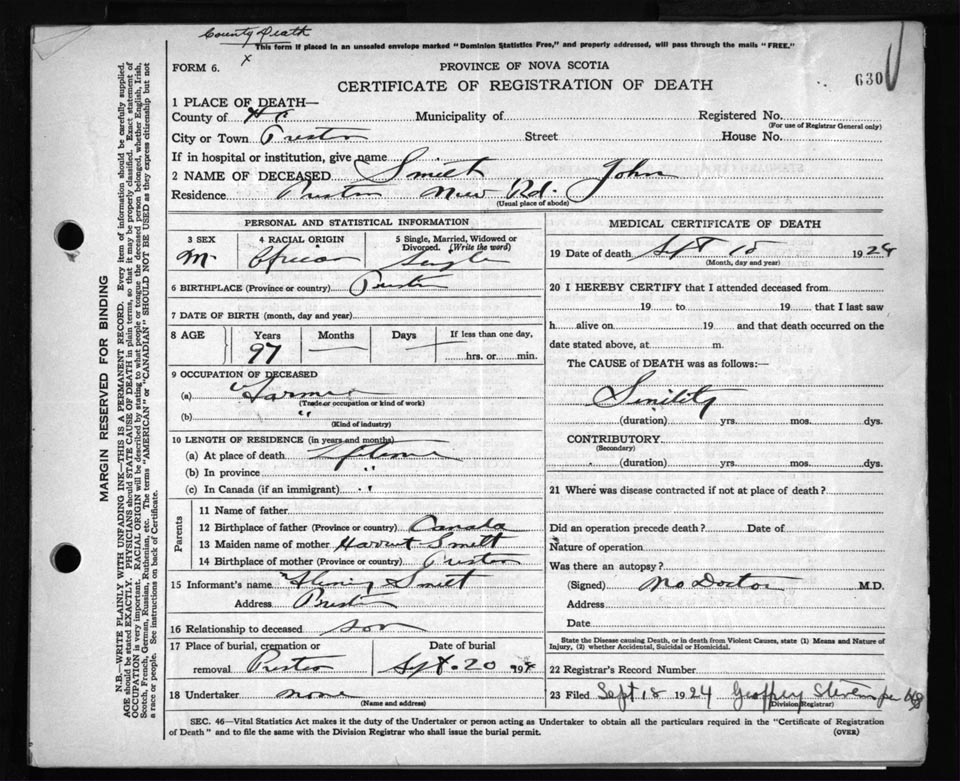 County Death
This form if placed in an unsealed envelope marked "Dominion Statistics Free," and properly addressed, will pass through the mails "FREE."
x
FORM 6.
PROVINCE OF NOVA SCOTIA
630
CERTIFICATE OF REGISTRATION OF DEATH
1 PLACE OF DEATH—
County of Municipality of Registered No.
(For use of Registrar General only)
City or Town Preston Street House No.
If in hospital or institution, give name
2 NAME OF DECEASED Smith John
Residence Preston New Rd.
(Usual place of abode)
PERSONAL AND STATISTICAL INFORMATION
3 SEX 4 RACIAL ORIGIN 5 Single, Married, Widowed or Divorced. (Write the word)
M. African Single
6 BIRTHPLACE (Province or country) Preston
7 DATE OF BIRTH (month, day and year)
8 AGE Years Months Days If less than one day,
97 — — hrs. or min.
9 OCCUPATION OF DECEASED
(a) Farmer
(Trade or occupation or kind of work)
(b) "
(Kind of industry)
10 LENGTH OF RESIDENCE (in years and months)
(a) At place of death Lifetime
(b) In province "
(c) In Canada (if an immigrant) "
Parents
11 Name of father
12 Birthplace of father (Province or country) Canada
13 Maiden name of mother Smith
14 Birthplace of mother (Province or country) Preston
15 Informant's name Henry Smith
Address Preston
16 Relationship to deceased son
17 Place of burial, cremation or Date of burial
removal Preston Sept. 20 194
18 Undertaker none
(Name and address)
MEDICAL CERTIFICATE OF DEATH
19 Date of death Sept 1924
(Month, day and year)
20 I HEREBY CERTIFY that I attended deceased from
19 to 19 that I last saw
h alive on 19 and that death occurred on the
date stated above, at m.
The CAUSE of DEATH was as follows:
Senility
(duration) yrs. mos. dys.
CONTRIBUTORY
(Secondary)
(duration) yrs. mos. dys.
21 Where was disease contracted if not at place of death?
Did an operation precede death? Date of
Nature of operation
Was there an autopsy?
(Signed) No Doctor M.D.
Address
Date
State the Disease causing Death, or in death from Violent Causes, state (1) Means and Nature of
Injury, (2) whether Accidental, Suicidal or Homicidal.
22 Registrar's Record Number
23 Filed Sept 18 1924 Geoffrey Stevens
(Division Registrar)
SEC. 46—Vital Statistics Act makes it the duty of the Undertaker or person acting as Undertaker to obtain all the particulars required in the "Certificate of Registration
of Death" and to file the same with the Division Registrar who shall issue the burial permit.
(OVER)
MARGIN RESERVED FOR BINDING
N.B.—WRITE PLAINLY WITH UNFADING INK—THIS IS A PERMANENT RECORD. Every item of information should be carefully supplied.
AGE should be stated EXACTLY. PHYSICIANS should STATE CAUSE OF DEATH in plain terms, so that it may be properly classified. Exact statement of
OCCUPATION is very important. RACIAL ORIGIN will be described by stating to what people or tongue the deceased person belonged, whether English, Irish,
Scotch, French, German, Russian, Ruthenian, etc. The terms "AMERICAN" or "CANADIAN" SHOULD NOT BE USED as they express citizenship but not
a race or people. See instructions on back of Certificate.